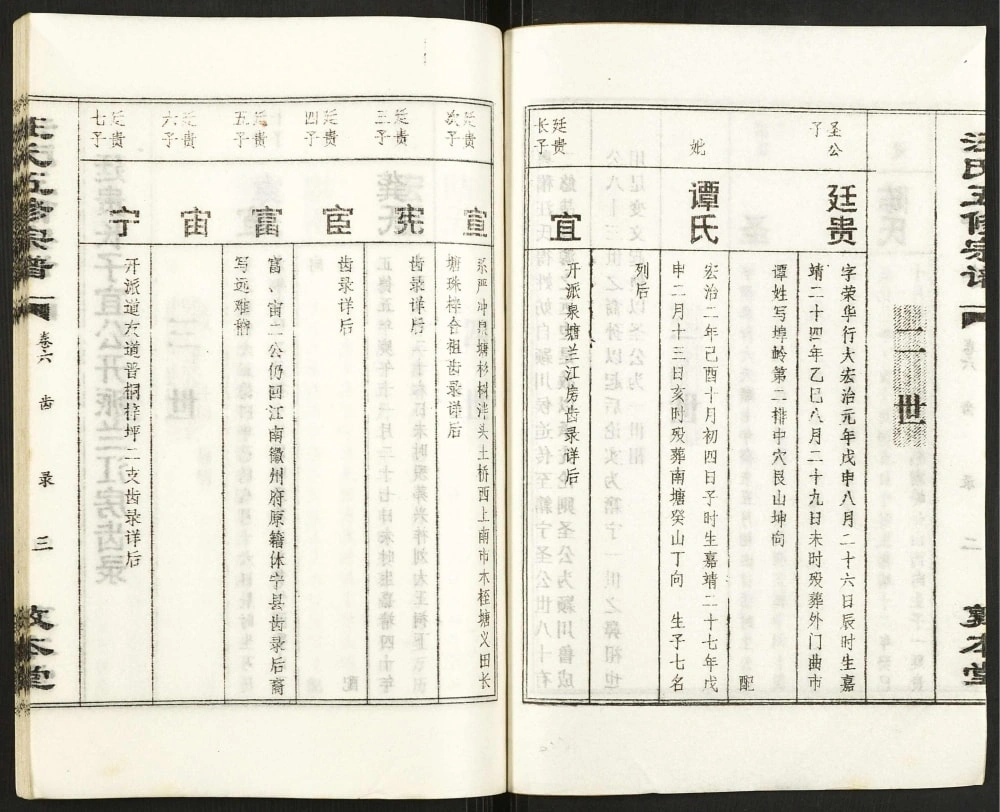 汪氏五修宗谱
敦本堂
二世
圣公
子
廷贵
字荣华行大宏治元年戊申八月二十六日辰时生嘉
靖二十四年乙巳八月二十九日未时殁葬外门曲市
谭姓写埠岭第二排中穴艮山坤向
配
妣
谭氏
宏治二年己酉十月初四日子时生嘉靖二十七年戊
申二月十三日亥时殁葬南塘癸山丁向 生子七名
列后
廷贵
长子
宜
开派泉塘兰江房齿录详后
廷贵
次子
宣
系严冲县塘杉树泮头土桥西上南市木桎塘义田长
塘珠梓合祖齿录详后
廷贵
三子
宪
齿录详后
廷贵
四子
宦
齿录详后
廷贵
五子
富
富、宙二公仍回江南徽州府原籍休宁县齿录后裔
写远难稽
廷贵
六子
宙
廷贵
七子
宁
开派道大道晋桐梓坪二支齿录详后
汪氏五修宗谱
卷六
齿录
三
敦本堂